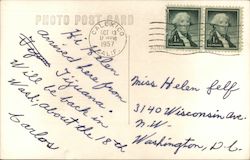 PHOTO POST CARD
CALEXICO
OCT 13
1957
CALIF.
Hi Helen
arrived here from
Tijuana.
Will be back in
Wash. about the 18th
Carlos
Miss Helen Self
3140 Wisconsin Ave
N.W.
Washington, D.C.